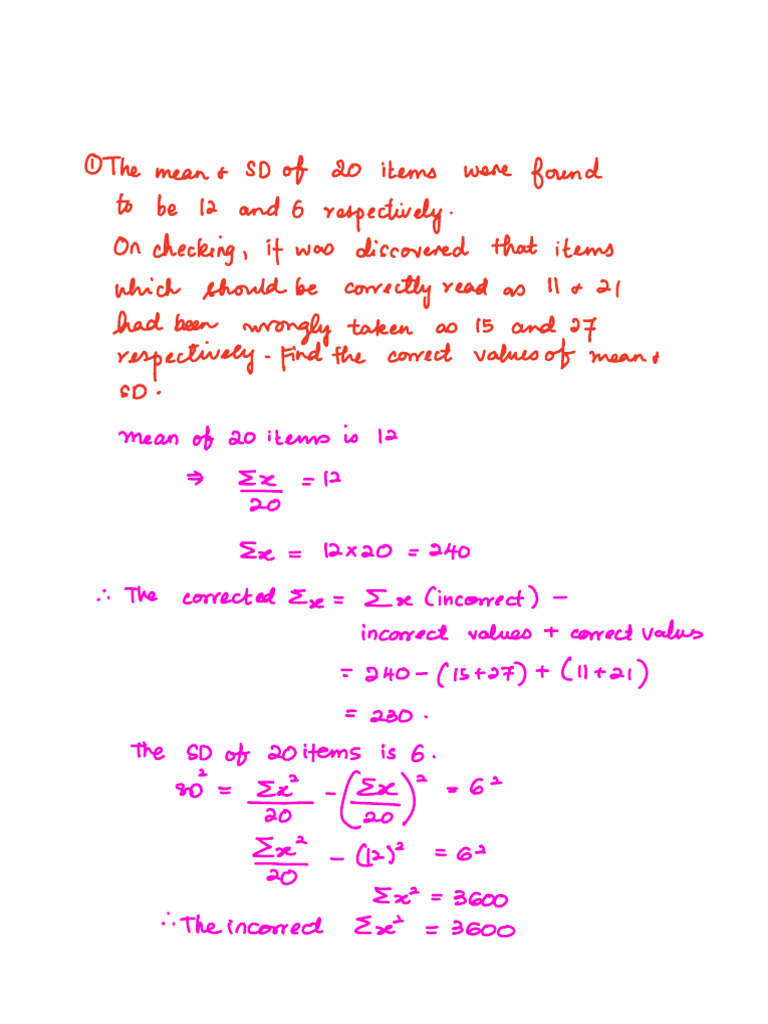 ① The mean & SD of 20 items were found
to be 12 and 6 respectively.
On checking, it was discovered that items
which should be correctly read as 11 & 21
had been wrongly taken as 15 and 27
respectively - Find the correct values of mean &
SD.
mean of 20 items is 12
⇒ Σx/20 = 12
Σx = 12×20 = 240
∴ The corrected Σx = Σx (incorrect) –
incorrect values + correct values
= 240 – (15+27) + (11+21)
= 230.
The SD of 20 items is 6.
SD² = Σx²/20 – (Σx/20)² = 6²
Σx²/20 – (12)² = 6²
Σx² = 3600
∴ The incorrect Σx² = 3600